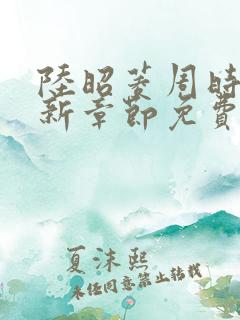 陸昭菱周時
新章節免費
夏沫熙
未经同意禁止转载